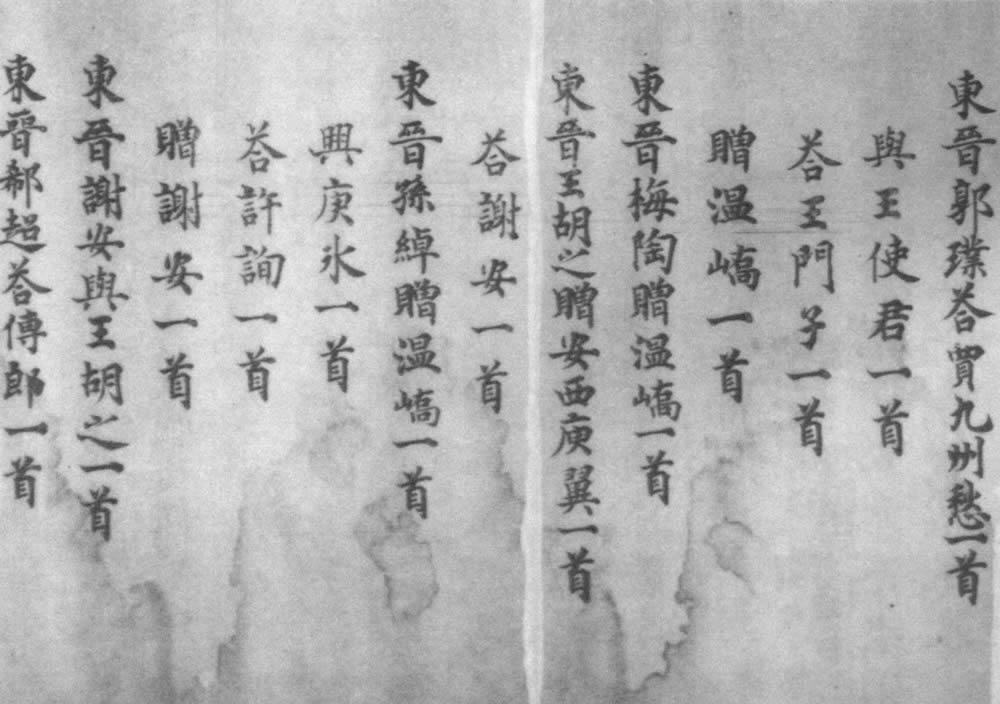 東晉郭璞荅賈九州愁一首
與王使君一首
荅王門子一首
贈温嶠一首
東晉梅陶贈温嶠一首
東晉王胡之贈安西庾翼一首
荅謝安一首
東晉孫綽贈温嶠一首
興庾氷一首
荅許詢一首
贈謝安一首
東晉謝安與王胡之一首
東晉郗超荅傅郎一首